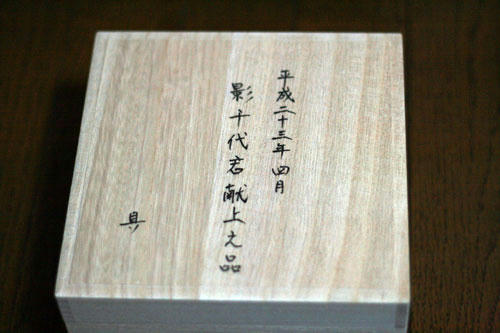 平成二十三年四月
影千代君献上之品
具